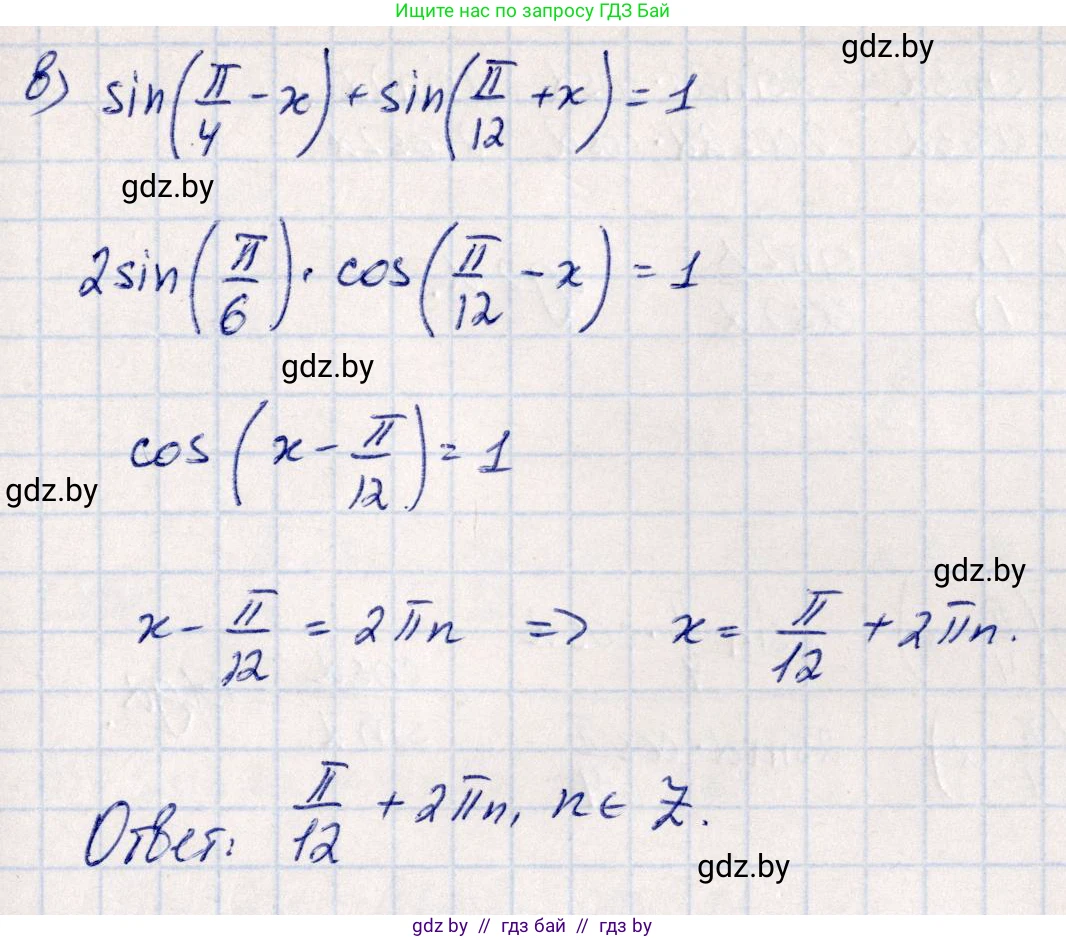 Ищите нас по запросу ГДЗ Бай
gdz.by
в) sin(π/4 - x) + sin(π/12 + x) = 1
gdz.by
2sin(π/6) · cos(π/12 - x) = 1
gdz.by
cos(x - π/12) = 1
gdz.by
gdz.by
x - π/12 = 2πn => x = π/12 + 2πn.
Ответ: π/12 + 2πn, n ∈ Z.
gdz.by
gdz.by // гдз бай // гдз by